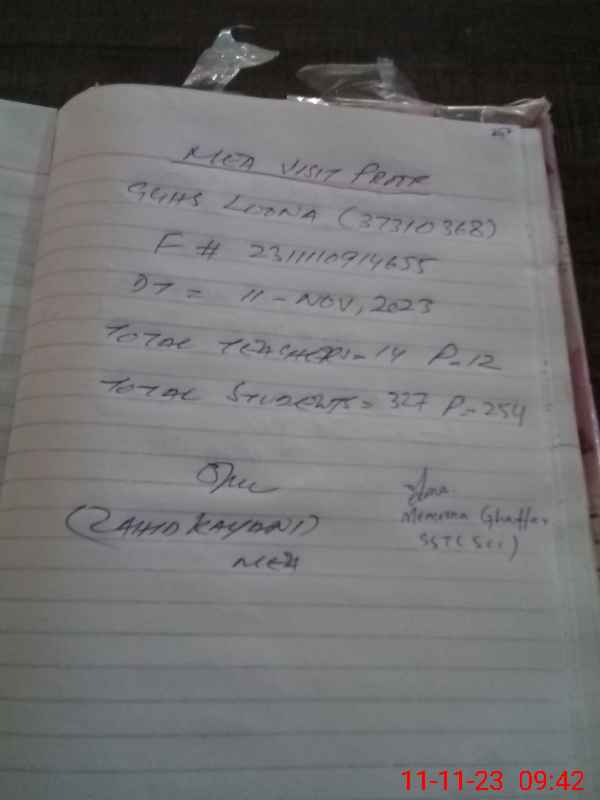 MEA VISIT PROOF
GGHS LOONA (37310368)
F # 2311110914655
DT = 11-NOV, 2023
TOTAL TEACHERS=14 P=12
TOTAL STUDENTS= 327 P=254
(ZAHID KAYANI)
MEA
Memoona Ghaffar
SST(Sci)
11-11-23 09:42